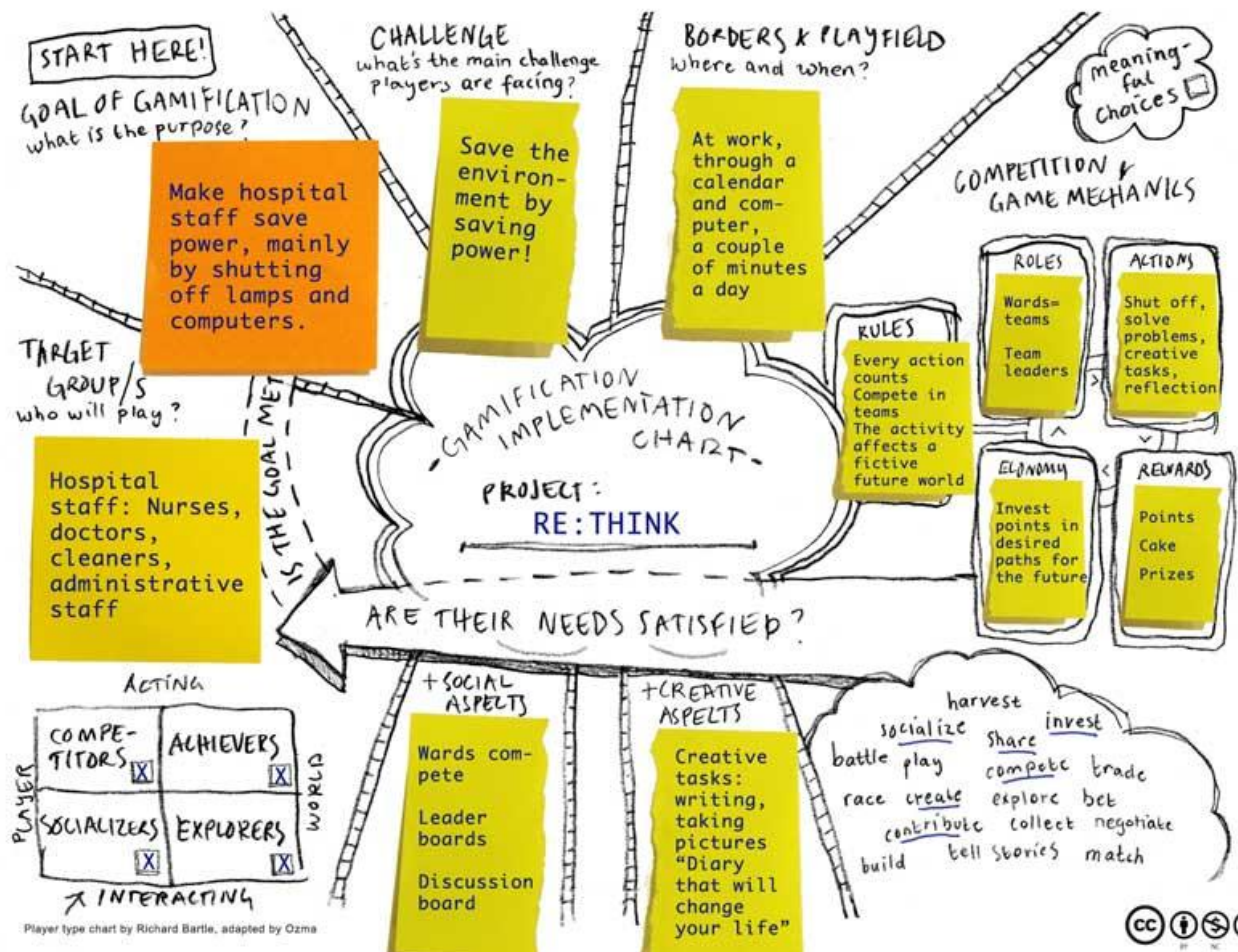 START HERE!
GOAL OF GAMIFICATION
what is the purpose?
Make hospital
staff save
power, mainly
by shutting
off lamps and
computers.
CHALLENGE
what's the main challenge
players are facing?
Save the
environ-
ment by
saving
power!
BORDERS & PLAYFIELD
where and when?
At work,
through a
calendar
and com-
puter,
a couple
of minutes
a day
meaning-
ful
choices
COMPETITION &
GAME MECHANICS
ROLES
Wards=
teams
Team
leaders
ACTIONS
Shut off,
solve
problems,
creative
tasks,
reflection
RULES
Every action
counts
Compete in
teams
The activity
affects a
fictive
future world
ECONOMY
Invest
points in
desired
paths for
the future
REWARDS
Points
Cake
Prizes
TARGET
GROUP/S
who will play?
Hospital
staff: Nurses,
doctors,
cleaners,
administrative
staff
IS THE GOAL MET
-GAMIFICATION
IMPLEMENTATION
CHART-
PROJECT:
RE:THINK
ARE THEIR NEEDS SATISFIED?
ACTING
PLAYER
COMPE-
TITORS X
ACHIEVERS X
SOCIALIZERS X
EXPLORERS X
WORLD
INTERACTING
Player type chart by Richard Bartle, adapted by Ozma
+SOCIAL
ASPECTS
Wards com-
pete
Leader
boards
Discussion
board
+CREATIVE
ASPECTS
Creative
tasks:
writing,
taking
pictures
“Diary
that will
change
your life”
harvest
socialize share invest
battle play compete trade
race create explore bet
contribute collect negotiate
build tell stories match
CC